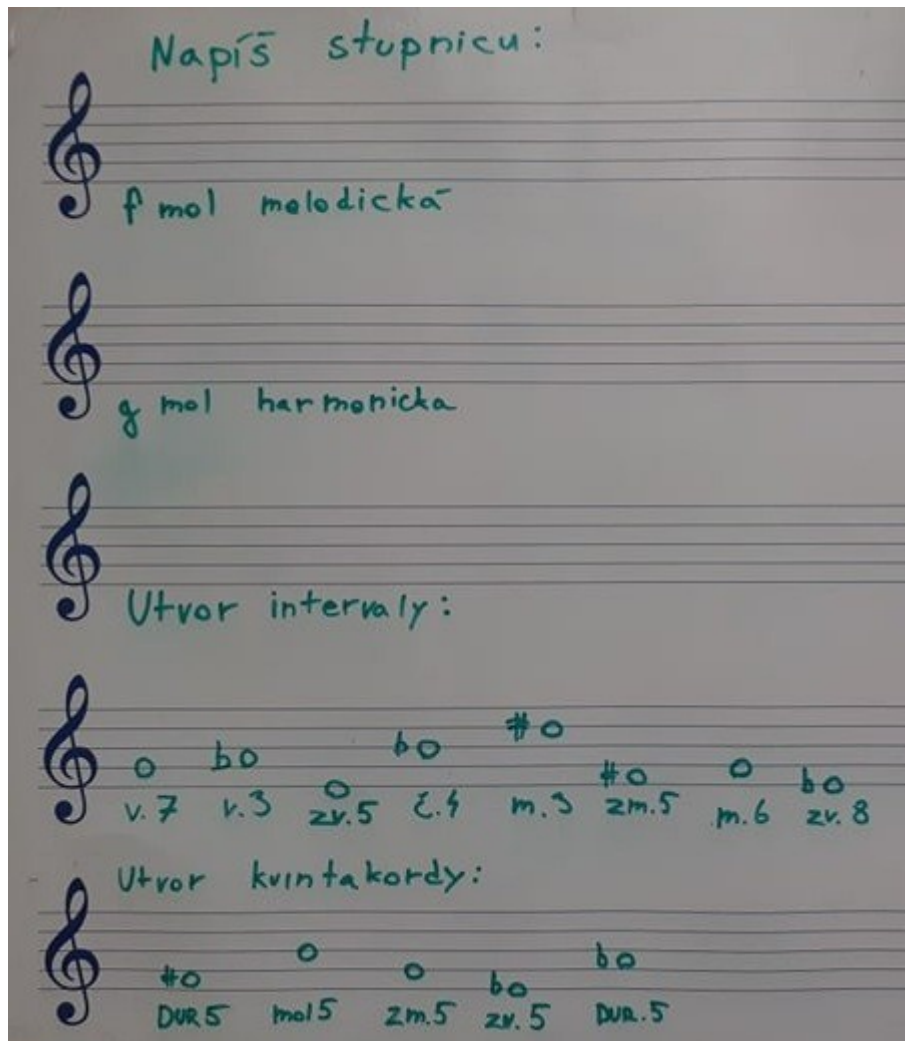 Napíš stupnicu:
f mol melodická
g mol harmonicka
Utvor intervaly:
v. 7 v. 3 zv. 5 č. 4 m. 3 zm. 5 m. 6 zv. 8
Utvor kvintakordy:
DUR 5 mol 5 zm. 5 zv. 5 DUR. 5